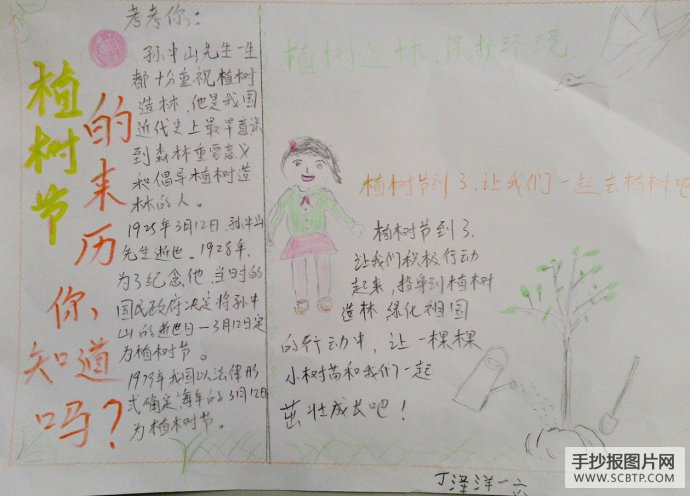 植树节
的来历
你
知道
吗？
考考你：
孙中山先生一生
都十分重视植树
造林、他是我国
近代史上最早意识
到森林重要意义
和倡导植树造
林的人。
1925年3月12日，孙中山
先生逝世。1928年，
为了纪念他，当时的
国民政府决定将孙中
山的逝世日—3月12日定
为植树节。
1979年我国以法律形
式确定，每年的3月12日
为植树节。
植树造林、保护环境
植树节到了，让我们一起去植树吧
植树节到了，
让我们积极行动
起来，投身到植树
造林 绿化祖国
的行动中，让一棵棵
小树苗和我们一起
茁壮成长吧！
丁泽洋 一六
手抄报图片网
WWW.SCBTP.COM